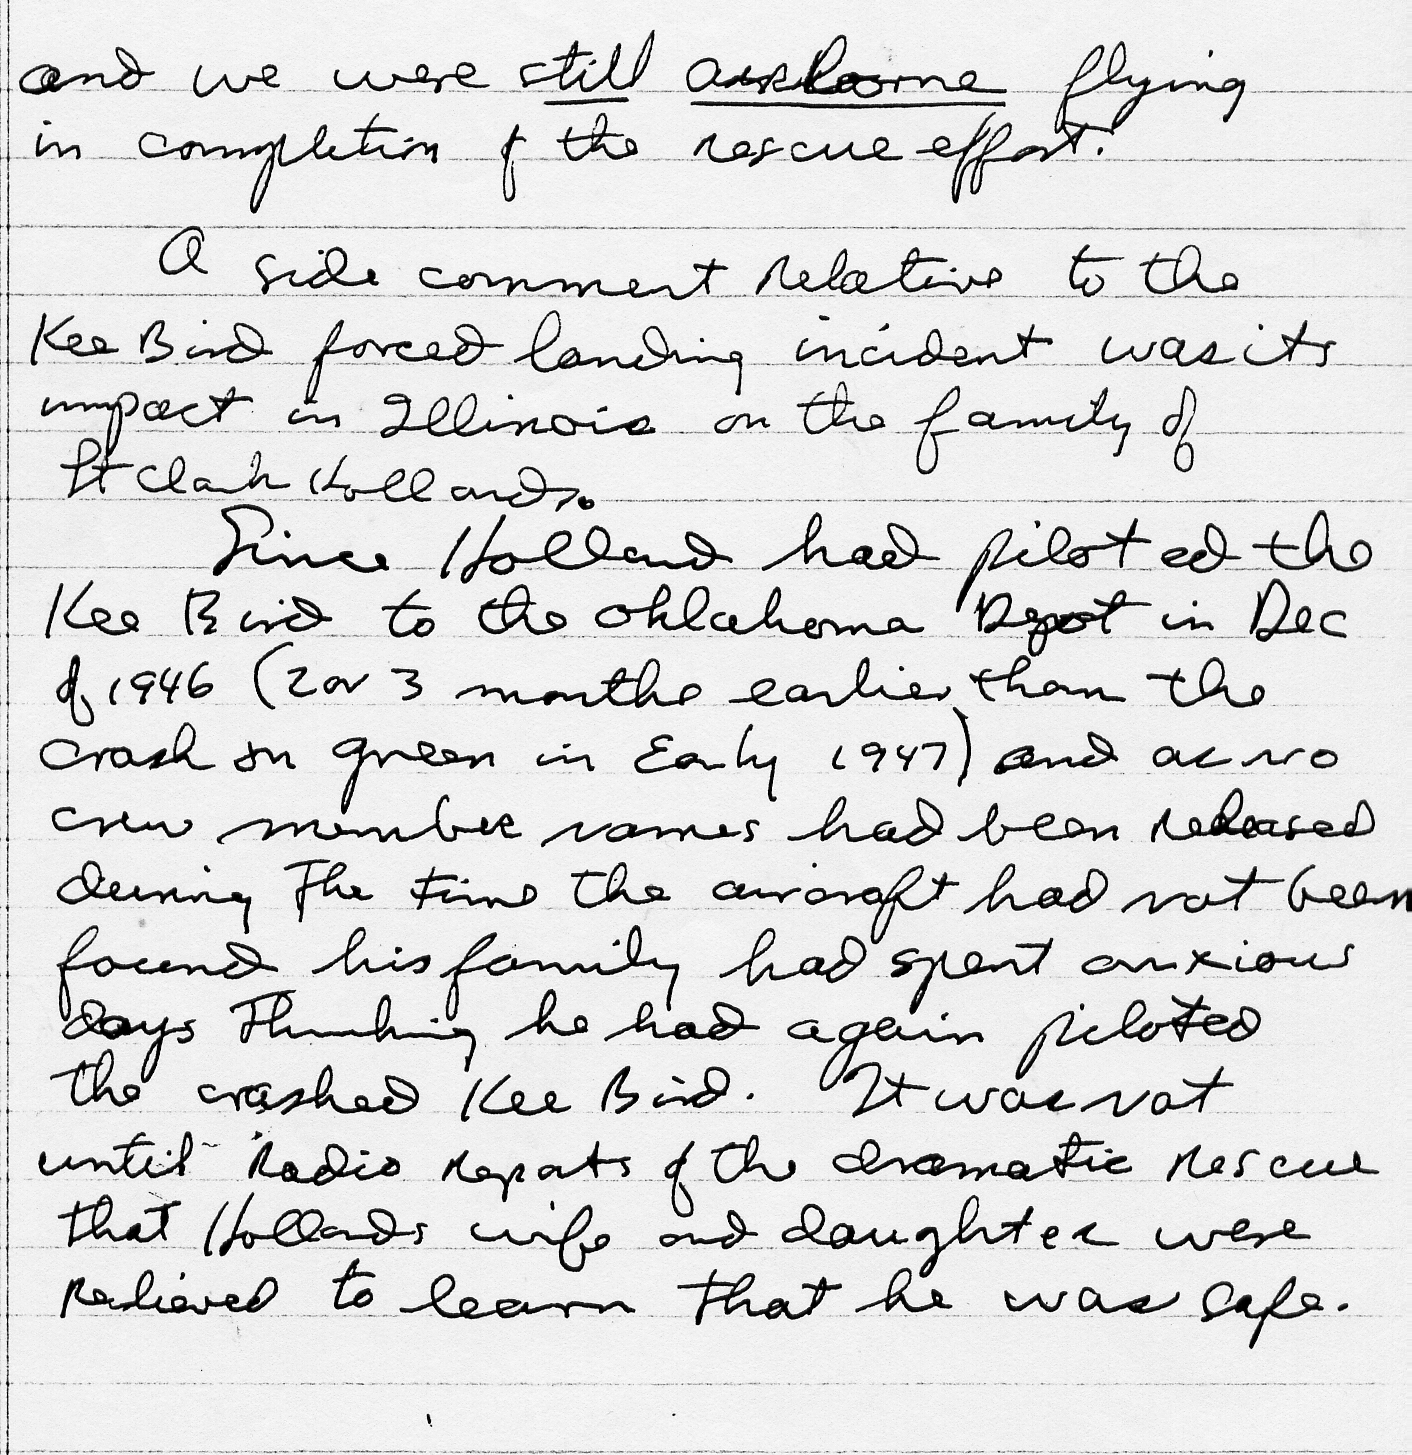 and we were still airborne flying
in completion of the rescue effort.
A side comment relative to the
Kee Bird forced landing incident was its
impact in Illinois on the family of
Lt Clark Hollands.
Since Holland had piloted the
Kee Bird to the Oklahoma Depot in Dec
of 1946 (2 or 3 months earlier than the
crash on green in Early 1947) and as no
crew member names had been released
during The time the aircraft had not been
found his family had spent anxious
days Thinking he had again piloted
the crashed Kee Bird. It was not
until Radio Reports of the dramatic Rescue
that Hollands wife and daughter were
Relieved to learn that he was safe.